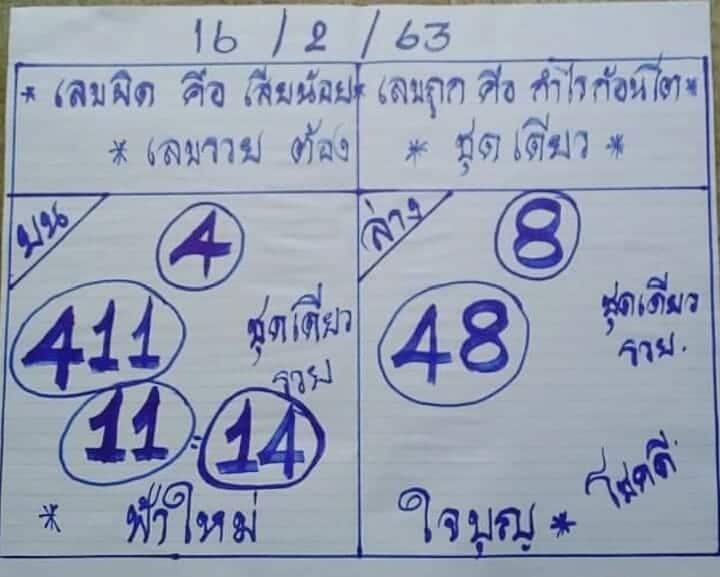 16 / 2 / 63
* เลขผิด คือ เสียน้อย * เลขถูก คือ กำไรก้อนโต *
* เลขรวย ต้อง * ชุดเดียว *
บน
4
411
ชุดเดียว
รวย
11 = 14
* ฟ้าใหม่
ล่าง
8
48
ชุดเดียว
รวย.
โชคดี
ใจบุญ *